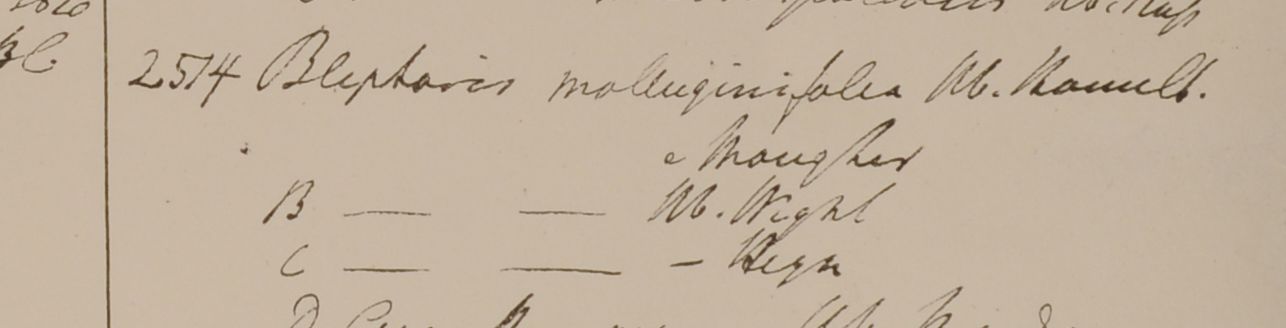 BC
2514 Blepharis molluginifolia Hb. Hamilt.
e Mongher
B — — Hb. Wight
C — — - Heyn